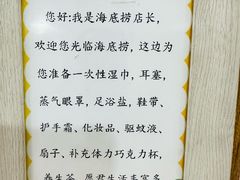 您好:我是海底捞店长,
欢迎您光临海底捞,这边为
您准备一次性湿巾,耳塞,
蒸气眼罩,足浴盐,鞋带、
护手霜、化妆品、驱蚊液、
扇子、补充体力巧克力杯,
养生茶,愿君生活丰富多